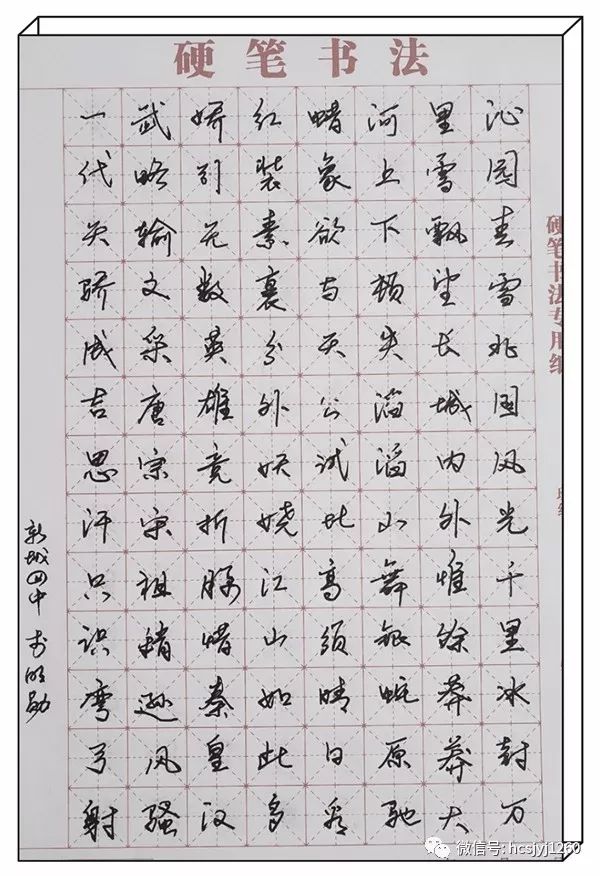 硬笔书法
沁园春雪北国风光千里冰封万
里雪飘望长城内外惟馀莽莽大
河上下顿失滔滔山舞银蛇原驰
蜡象欲与天公试比高须晴日看
红装素裹分外妖娆江山如此多
娇引无数英雄竞折腰惜秦皇汉
武略输文采唐宗宋祖稍逊风骚
一代天骄成吉思汗只识弯弓射
新城四中
硬笔书法专用纸
微信号: hcsjyj1260